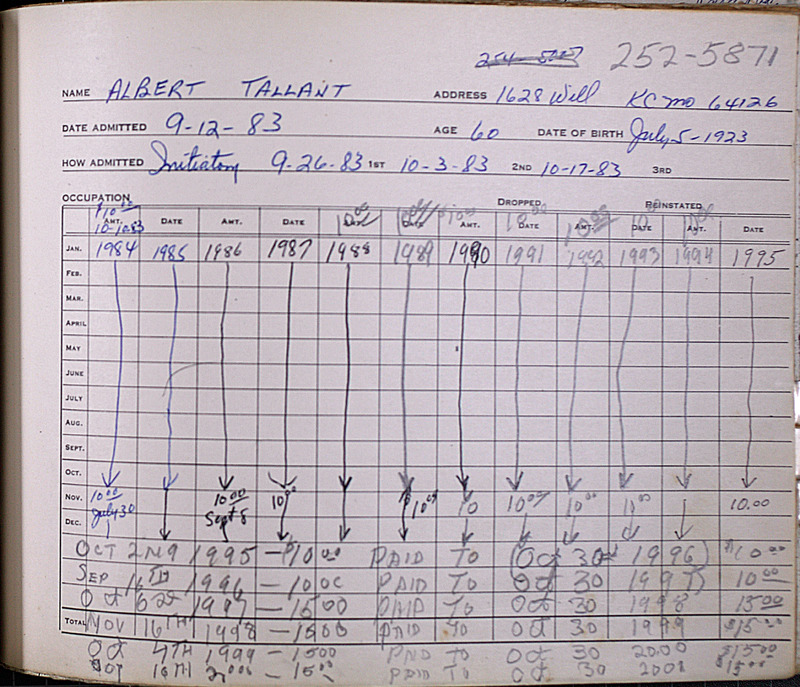 254-5887 252-5871
NAME ALBERT TALLANT ADDRESS 1628 Will KC mo 64126
DATE ADMITTED 9-12-83 AGE 60 DATE OF BIRTH July 5-1923
HOW ADMITTED Initiatory 9-26-83 1ST 10-3-83 2ND 10-17-83 3RD
OCCUPATION DROPPED REINSTATED
$10.00 10.00 $10.00 10.00 10.00
AMT. DATE AMT. DATE DATE AMT. DATE AMT. DATE AMT. DATE
10-12-83
JAN. 1984 1985 1986 1987 1988 1989 1990 1991 1992 1993 1994 1995
FEB.
MAR.
APRIL
MAY
JUNE
JULY
AUG.
SEPT.
OCT.
NOV. 10.00 10.00 10.00 10.00 10 10.00 10.00 10.00 10.00
July 30 Sept 8
DEC.
OCT 2ND 1995 — $10.00 PAID TO (Oct 30 1996) $10.00
SEP 16TH 1996 — 10.00 PAID TO Oct 30 1997) 10.00
Oct 1997 — 15.00 PAID TO Oct 30 1998 15.00
TOTAL NOV 16TH 1998 — 15.00 PAID TO Oct 30 1999 $15.00
Oct 4TH 1999 — 15.00 PAID TO Oct 30 2000 $15.00
Oct 16TH 2000 — 15.00 PAID TO Oct 30 2001 $15.00